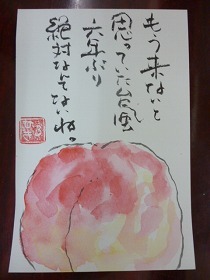 もう来ないと
思っていた台風
六年ぶり
絶対なんてないね。